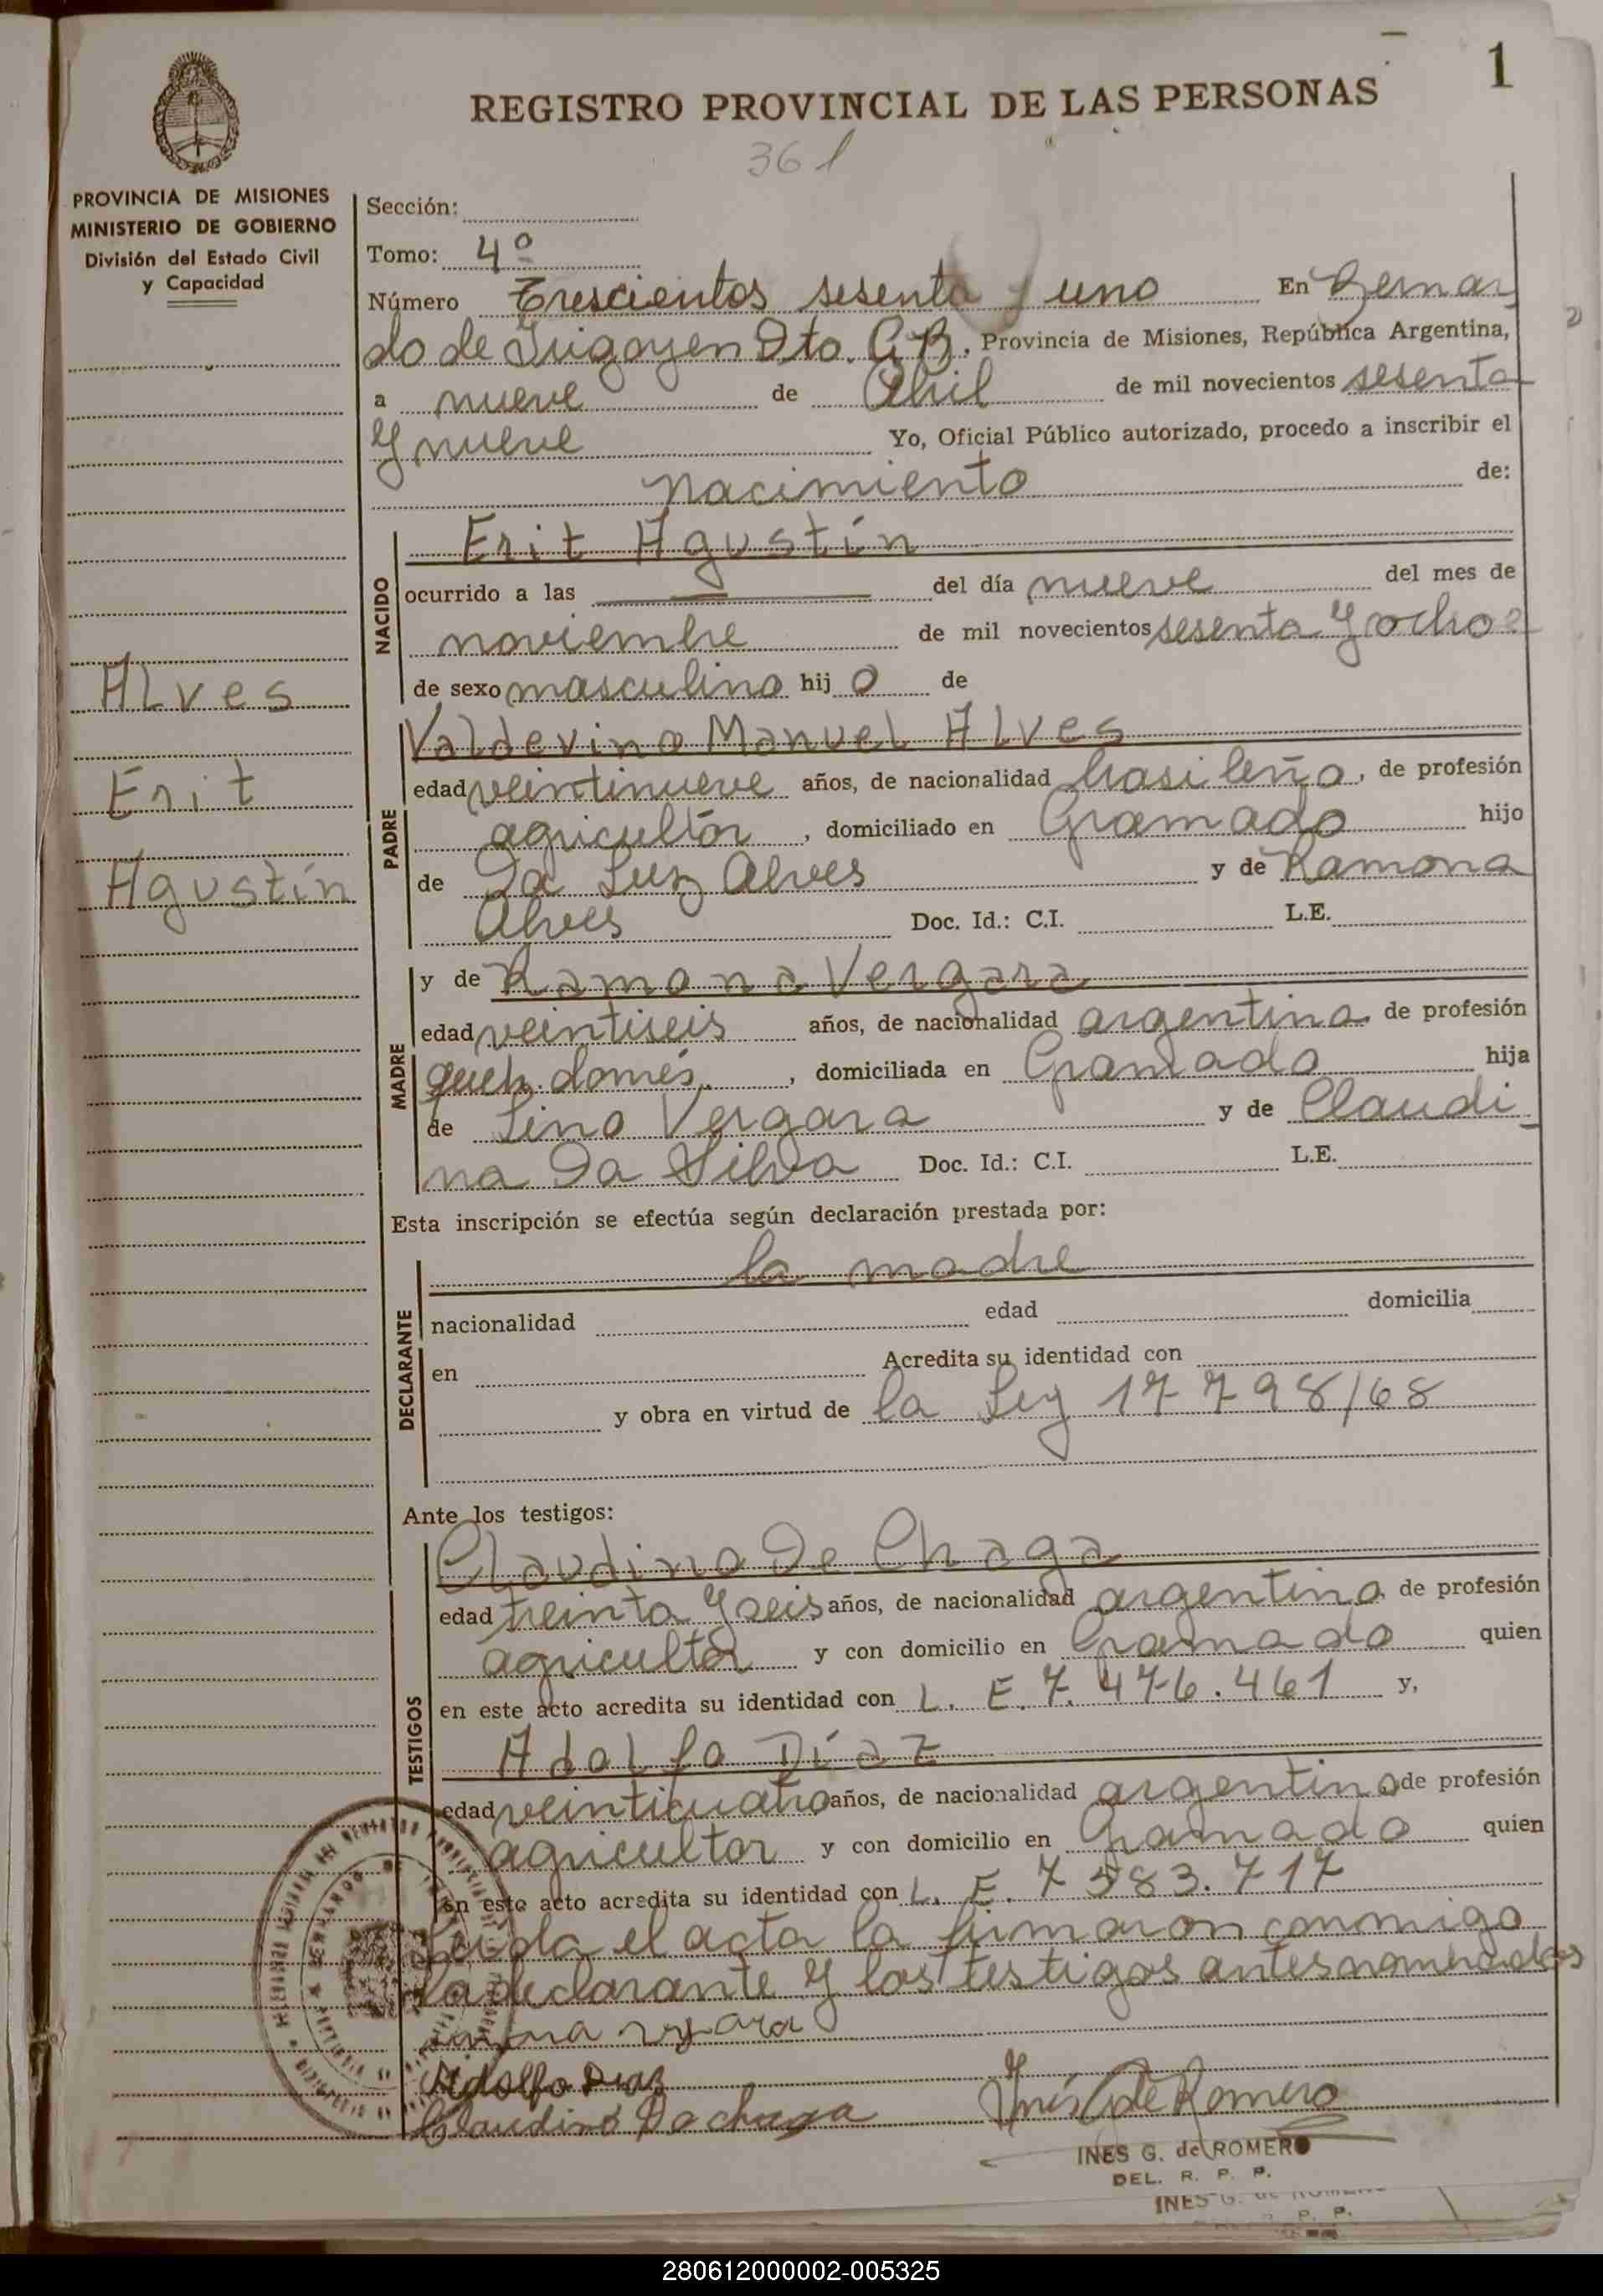 1
REGISTRO PROVINCIAL DE LAS PERSONAS
361
PROVINCIA DE MISIONES
MINISTERIO DE GOBIERNO
División del Estado Civil
y Capacidad
Sección:
Tomo: 4º
Número Trescientos sesenta y uno En Bernar
do de Irigoyen Dto. G.B., Provincia de Misiones, República Argentina,
a nueve de Abril de mil novecientos sesenta
y nueve Yo, Oficial Público autorizado, procedo a inscribir el
nacimiento de:
NACIDO
Erit Agustín
ocurrido a las del día nueve del mes de
noviembre de mil novecientos sesenta y ocho
de sexo masculino hij o de
Alves
Erit
Agustín
PADRE
Valdevino Manuel Alves
edad veintinueve años, de nacionalidad brasileña, de profesión
agricultor, domiciliado en Gramado hijo
de Da Luz Alves y de Ramona
Alves Doc. Id.: C.I. L.E.
MADRE
y de Ramona Vergara
edad veintiseis años, de nacionalidad argentina de profesión
queh. domés., domiciliada en Gramado hija
de Lino Vergara y de Claudi
na Da Silva Doc. Id.: C.I. L.E.
Esta inscripción se efectúa según declaración prestada por:
DECLARANTE
la madre
nacionalidad edad domicilia
en Acredita su identidad con
y obra en virtud de la Ley 17798/68
Ante los testigos:
TESTIGOS
Claudino De Chaga
edad treinta y seis años, de nacionalidad argentina de profesión
agricultor y con domicilio en Gramado quien
en este acto acredita su identidad con L. E. 7.476.461 y,
Adolfo Díaz
edad veinticuatro años, de nacionalidad argentina de profesión
agricultor y con domicilio en Gramado quien
en este acto acredita su identidad con L. E. 7 583.717
Leida el acta la firmaron conmigo
la declarante y los testigos antes nombrados
Adolfo Diaz
Claudino Da chaga
Inés G de Romero
INES G. de ROMERO
DEL. R. P. P.
INES G. de ROMERO
P. P.
280612000002-005325